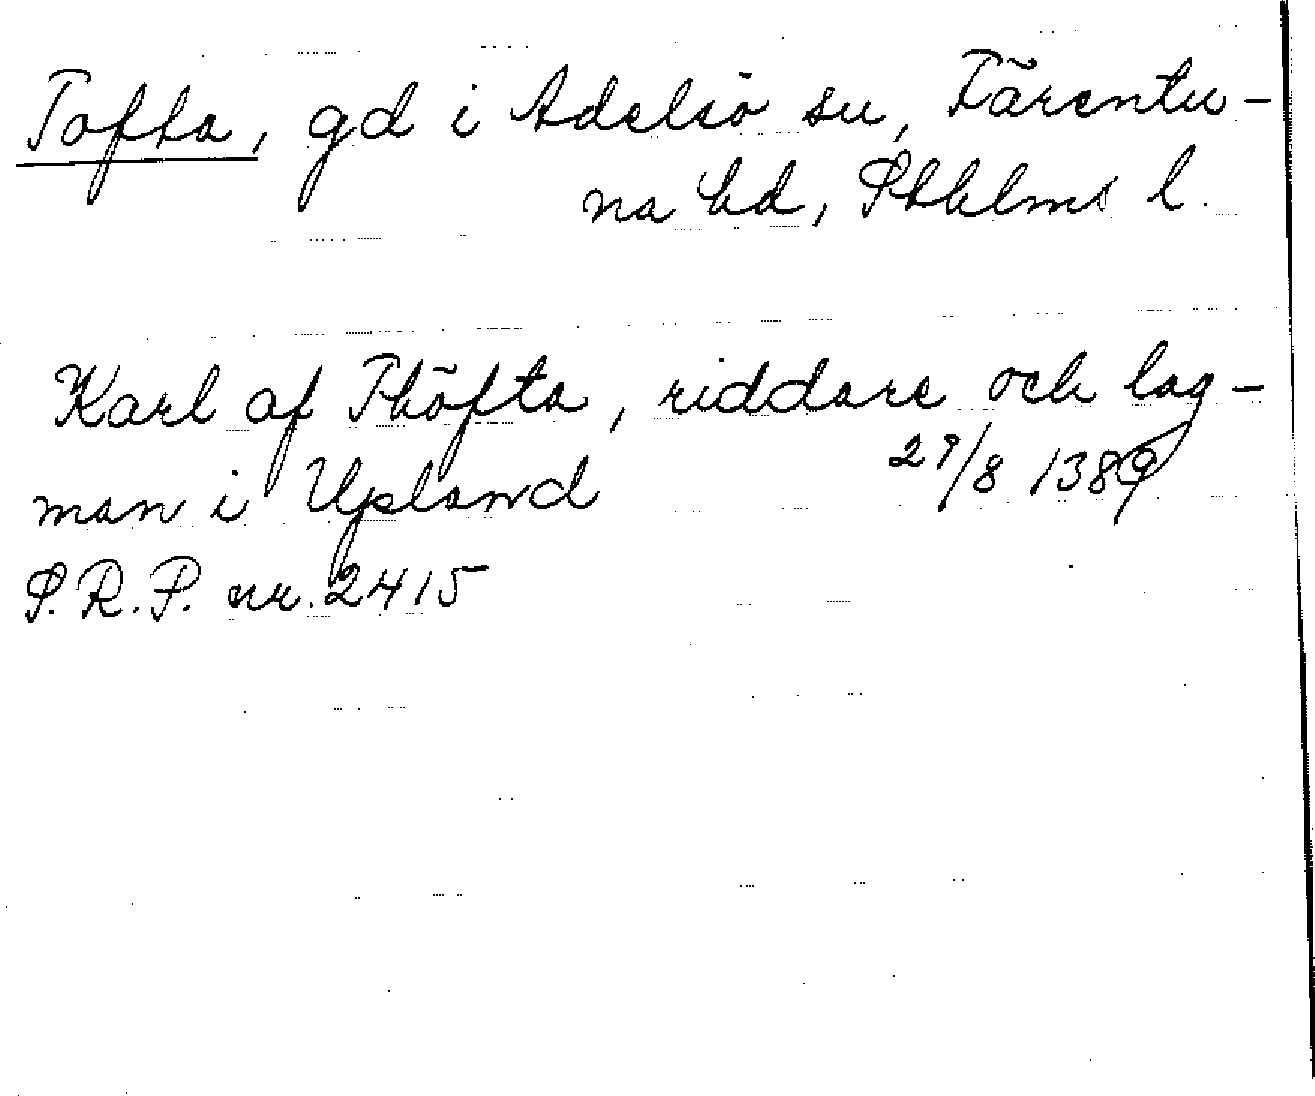 Tofta, gd i Adelsö sn, Färentu-
na hd, Sthlms l.
Karl af Thöfta, riddare och lag-
man i Upland 29/8 1389
S.R.P. nr. 2415